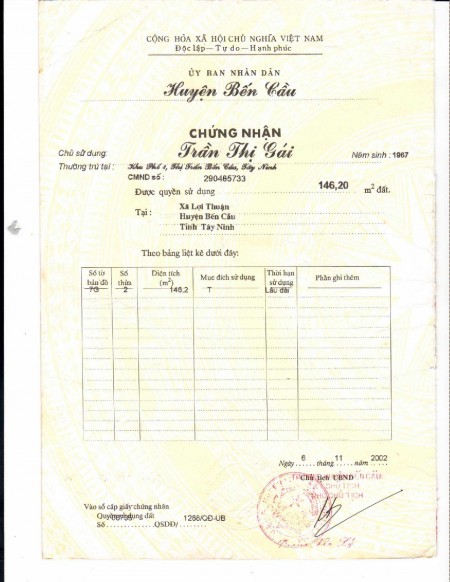 CỘNG HÒA XÃ HỘI CHỦ NGHĨA VIỆT NAM
Độc lập — Tự do — Hạnh phúc
ỦY BAN NHÂN DÂN
Huyện Bến Cầu
CHỨNG NHẬN
Chủ sử dụng: Trần Thị Gái Năm sinh : 1967
Thường trú tại : Khu Phố 1, Thị Trấn Bến Cầu, Tây Ninh
CMND số : 290485733
Được quyền sử dụng 146,20 m² đất.
Tại : Xã Lợi Thuận
Huyện Bến Cầu
Tỉnh Tây Ninh
Theo bảng liệt kê dưới đây:
Số tờ bản đồ Số thửa Diện tích (m²) Mục đích sử dụng Thời hạn sử dụng Phần ghi thêm
7G 2 146,2 T Lâu dài
Ngày 6 tháng 11 năm 2002
Chủ tịch UBND
Vào sổ cấp giấy chứng nhận
Quyền sử dụng đất 1288/QĐ-UB
Số QSDĐ/